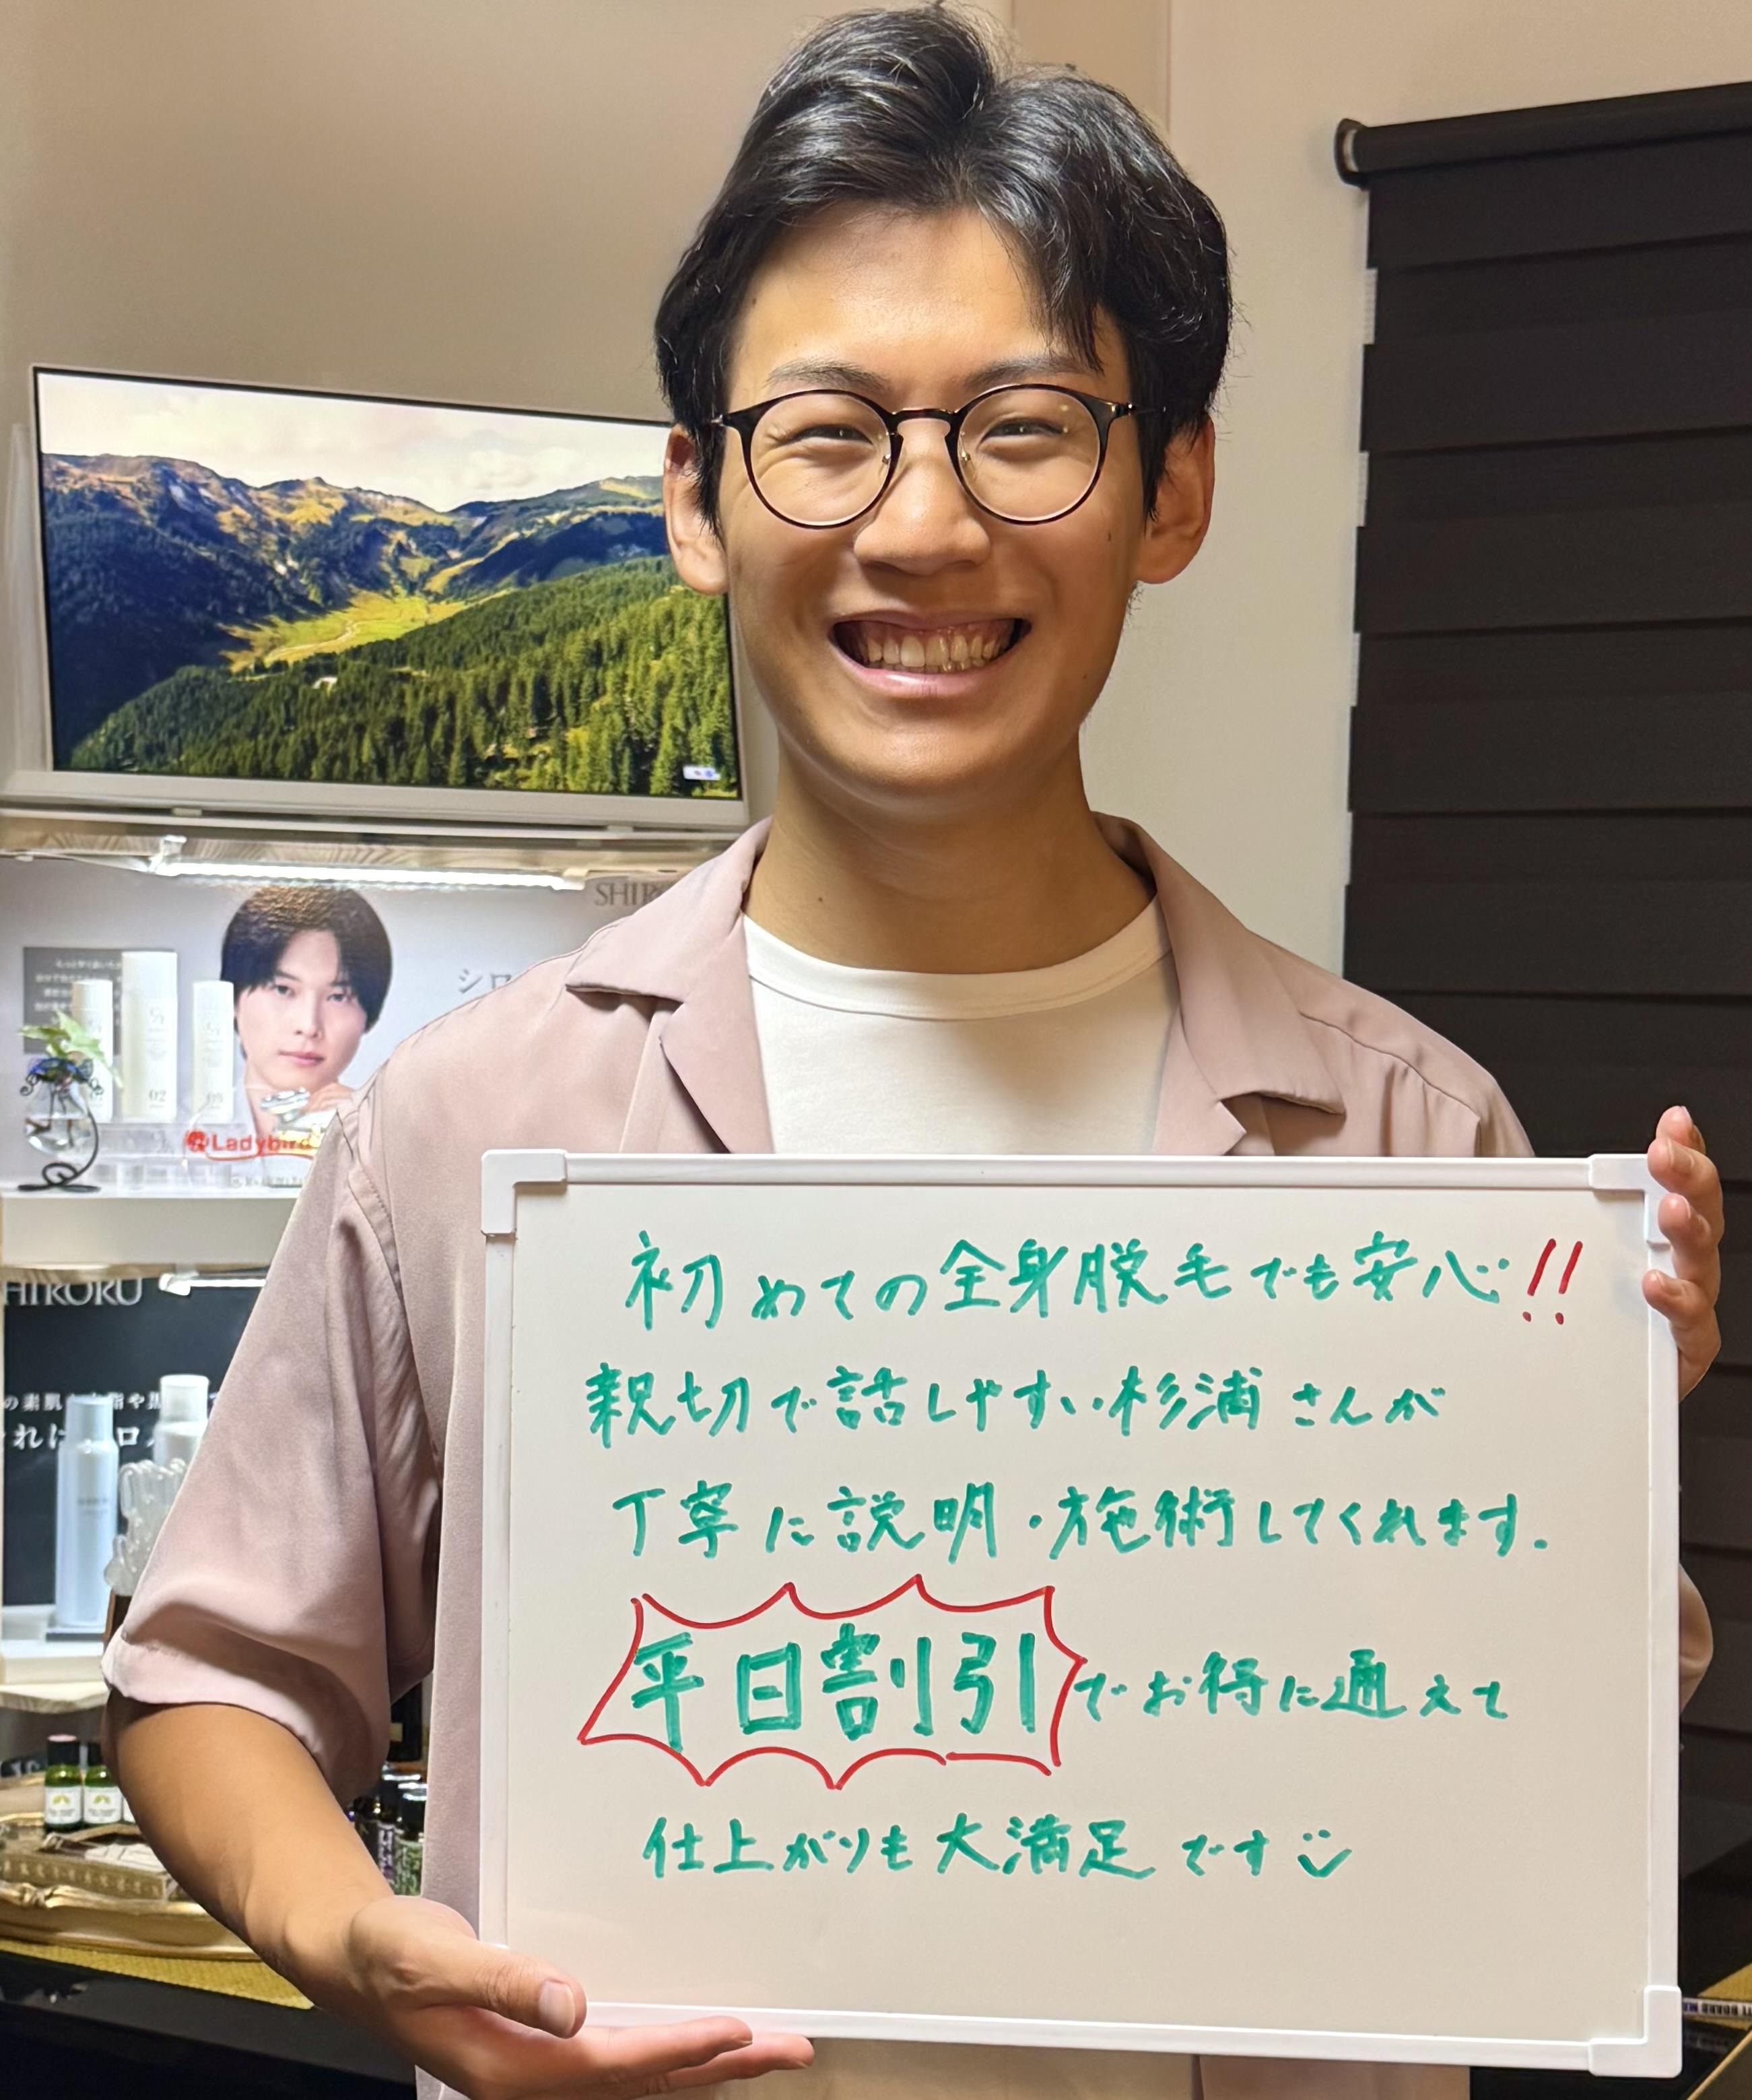 初めての全身脱毛でも安心!!
親切で話しやすい杉浦さんが
丁寧に説明・施術してくれます.
平日割引でお得に通えて
仕上がりも大満足です
SHIRO
シロ
02
03
Ladybird
HIRORU